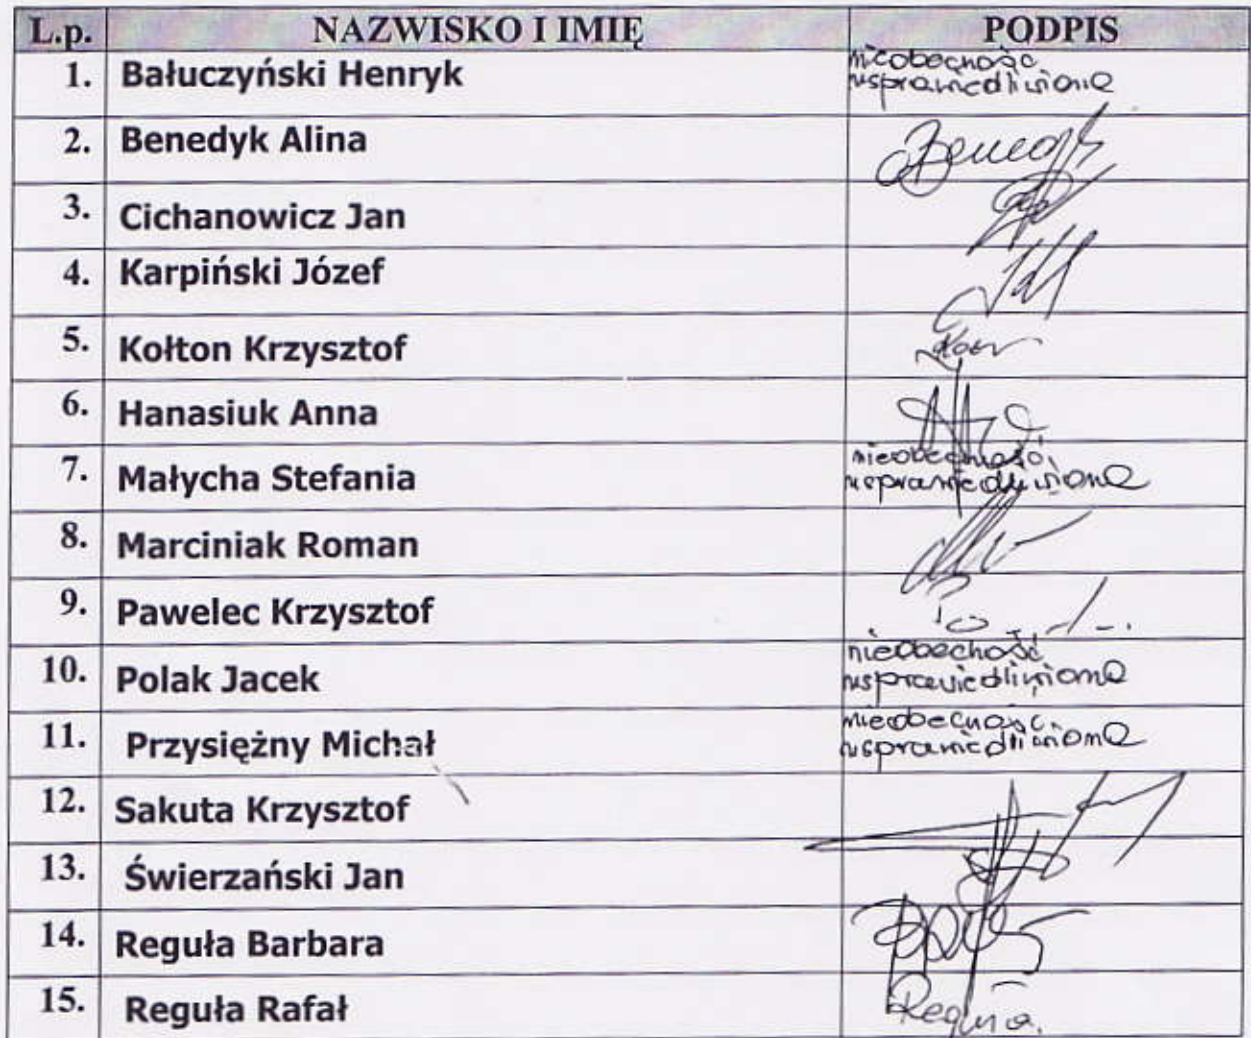 L.p. NAZWISKO I IMIĘ PODPIS
1. Bałuczyński Henryk nieobecność
usprawiedliwiona
2. Benedyk Alina Benedyk
3. Cichanowicz Jan
4. Karpiński Józef
5. Kołton Krzysztof
6. Hanasiuk Anna
7. Małycha Stefania nieobecność
usprawiedliwiona
8. Marciniak Roman
9. Pawelec Krzysztof
10. Polak Jacek nieobecność
usprawiedliwiona
11. Przysiężny Michał nieobecność
usprawiedliwiona
12. Sakuta Krzysztof
13. Świerzański Jan
14. Reguła Barbara
15. Reguła Rafał Reguła